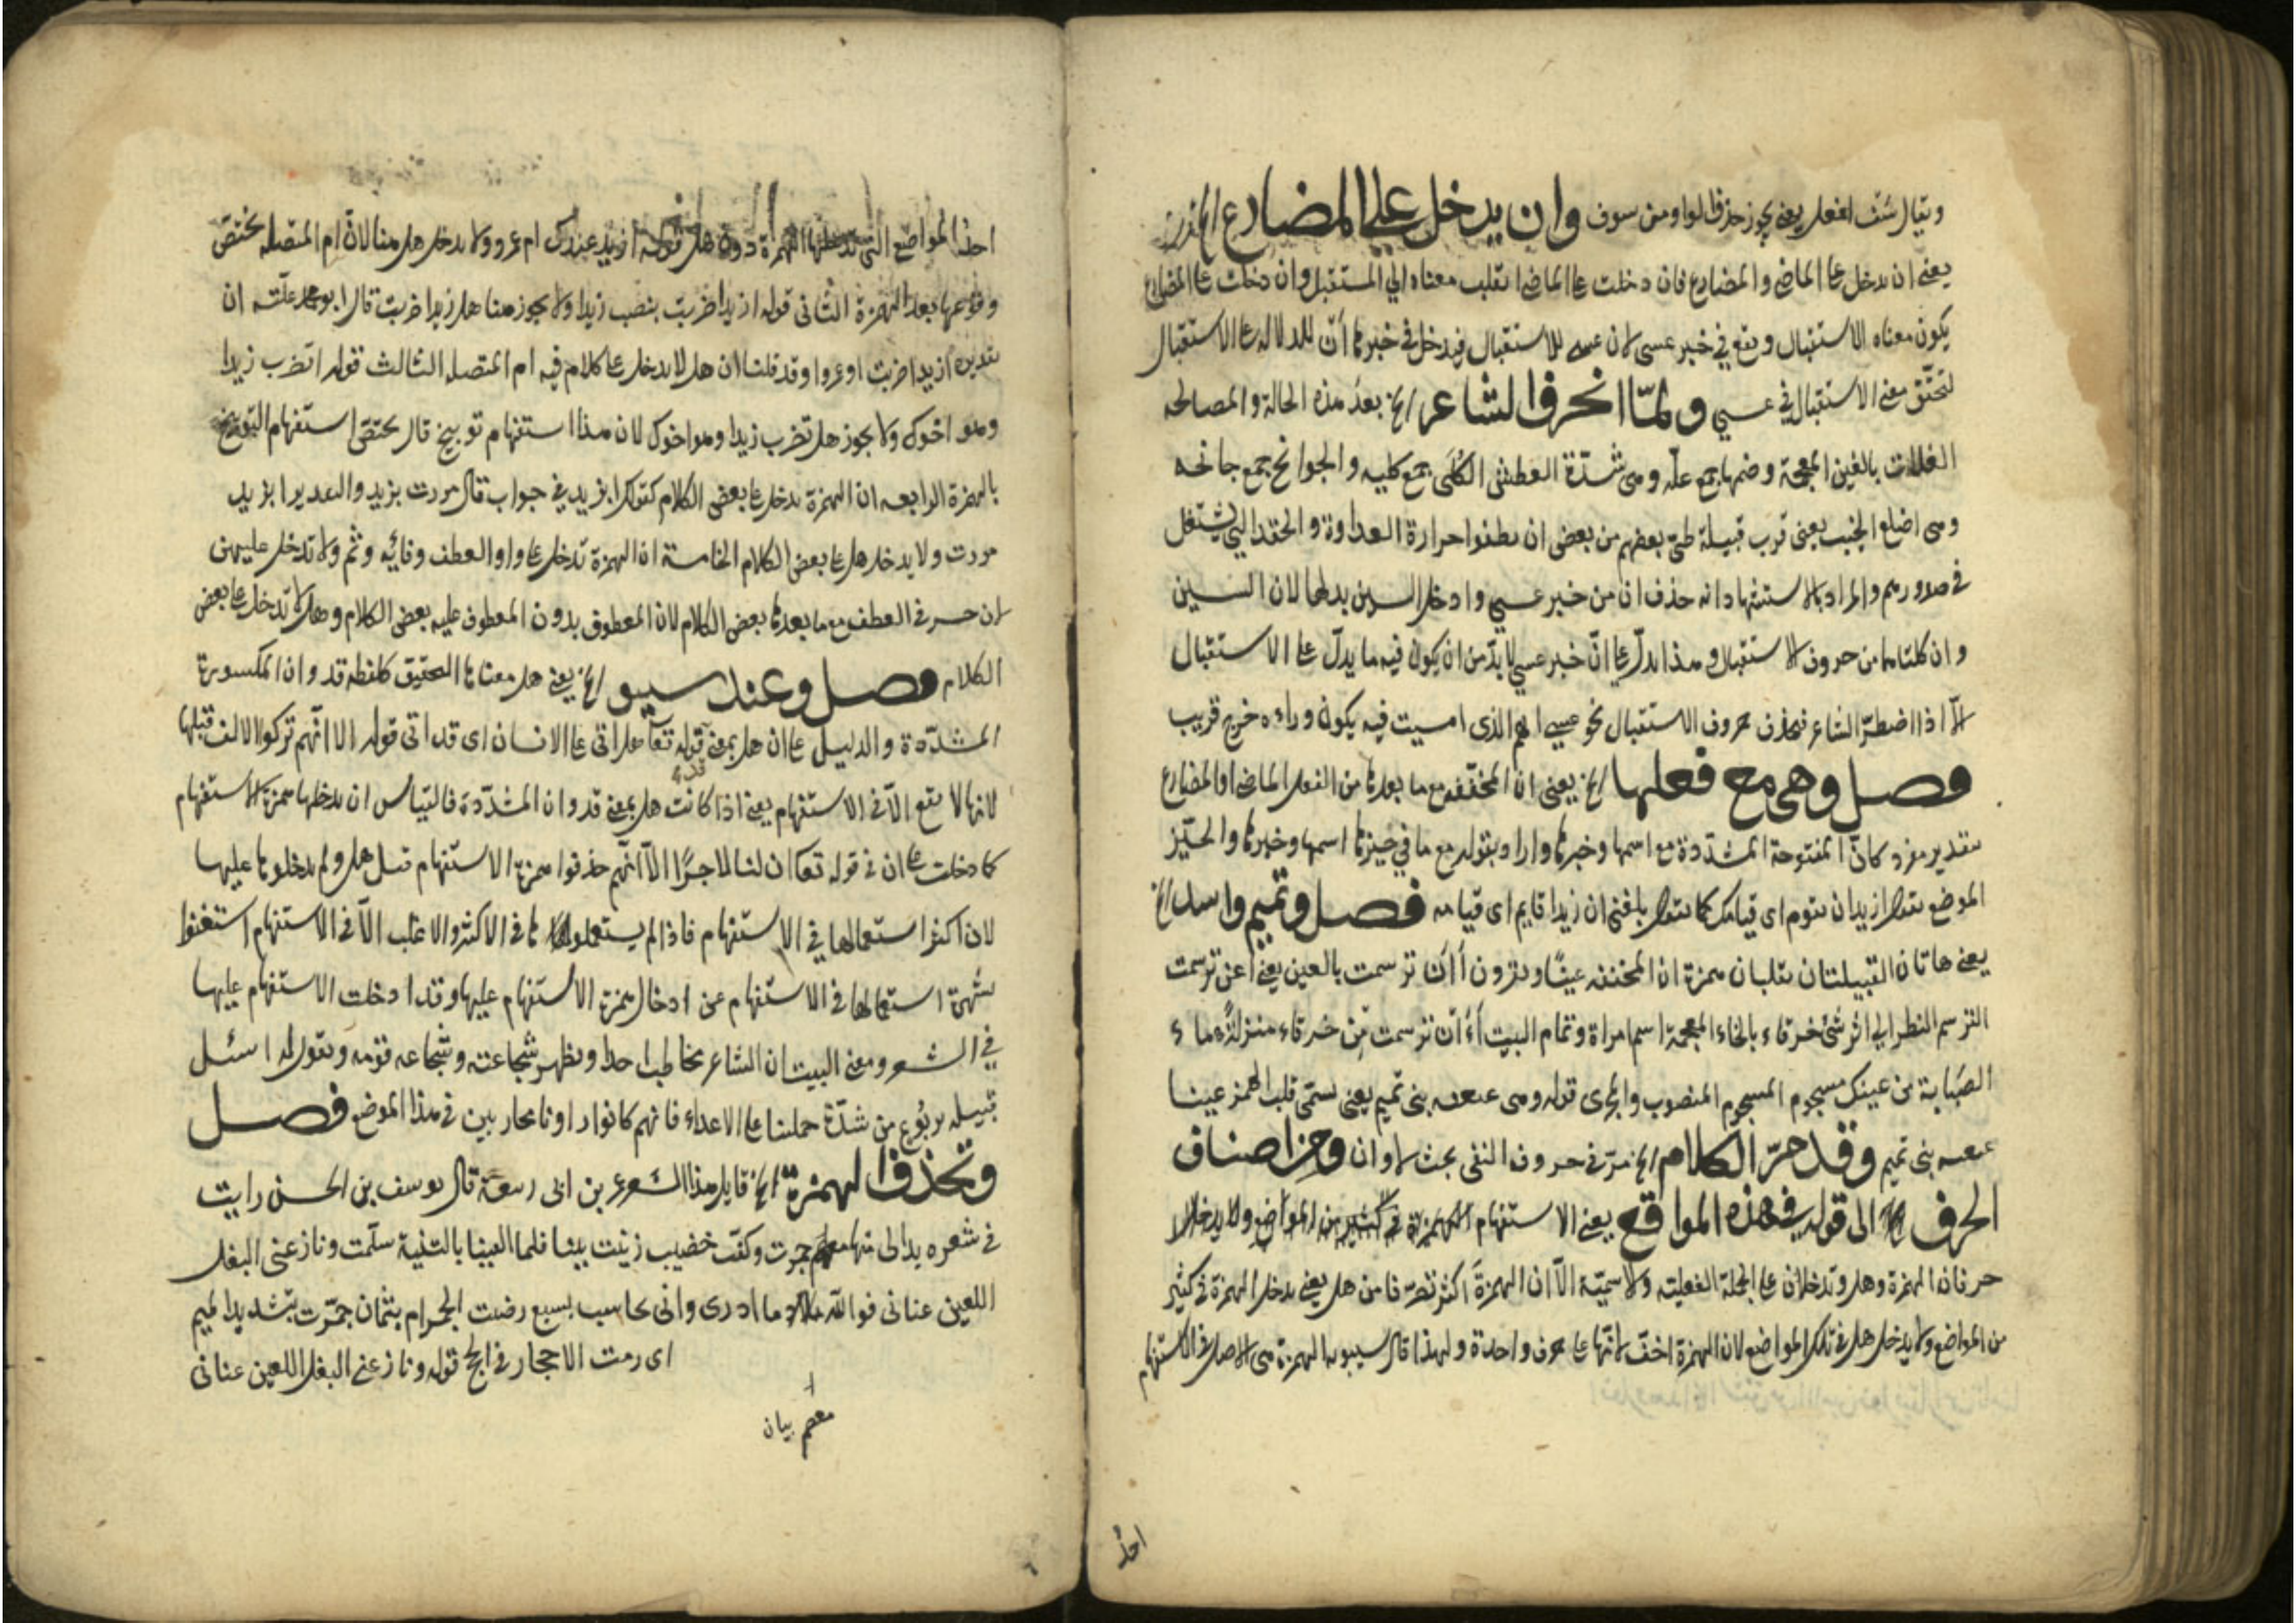 ويقال سف افعل يعني يجوز حذف الواو من سوف وان يدخل على المضارع الخ
يعني ان يدخل على الماضي والمضارع فان دخلت على الماضي انقلب معناه الى المستقبل وان دخلت على المضارع
يكون معناه الاستقبال ويقع في خبر عسى لان عسى للاستقبال فيدخل في خبرها ان للدلالة على الاستقبال
لتحقق معنى الاستقبال في عسى ولما انحرف الشاعر الخ بعد هذه الحالة والمصالحه
الغلات بالغين المعجمة وضمها جمع غلة وهي شدة العطش الكلى جمع كليه والجوانح جمع جانحه
وهي اضلع الجنب يعني قرب قبيلة طي بعضهم من بعض ان يطفوا حرارة العداوة والحقد التي يشتعل
في صدورهم والمراد بالاستشهاد انه حذف ان من خبر عسى وادخل السين بدلها لان السين
وان كلتاهما من حروف الاستقبال وهذا يدل على ان خبر عسى لا بد من ان يكون فيه ما يدل على الاستقبال
الا اذا اضطر الشاعر فيحذف حروف الاستقبال نحو عسى الهم الذي امسيت فيه يكون وراءه فرج قريب
فصل وهي مع فعلها الخ يعني ان المخففة مع ما بعدها من الفعل الماضي او المضارع
بتقدير مفرد كان المفتوحة المشددة مع اسمها وخبرها واراد بقوله مع ما في حيزها اسمها وخبرها والحيز
الموضع تقول ازيد ان تقوم اي قيامك كما تقول بلغني ان زيدا قايم اي قيامه فصل وتميم واسد الخ
يعني هاتان القبيلتان تقلبان همزة ان المخففة عينا ويقرون أأن ترسمت بالعين يعني اعن ترسمت
الترسم النظر الى اثر شئ خرقاء بالخاء المعجمة اسم امراة وتمام البيت أأن ترسمت من خرقاء منزلة ماء
الصبابة من عينك مسجوم المسجوم المنصوب والمجرى قوله وهي عنعنة بني تميم يعني تسمى قلب الهمز عينا
عنعنه بني تميم وقد مر الكلام الخ مر في حروف النفي بحث لا وان ومن اصناف
الحرف الى قوله في هذه المواقع يعني الاستفهام الهمزة في كثير من المواضع ولا يدخل
حرفان الهمزة وهل وتدخلان على الجملة الفعليته والاسمية الا ان الهمزة اكثر تصرفا من هل يعني يدخل الهمزة في كثير
من المواضع ولا يدخل هل في تلك المواضع لان الهمزة اخف لانها على حرف واحدة ولهذا قال سيبويه الهمزة هي الاصل في الاستفهام
احد
احد المواضع التي تدخلها الهمزة دون هل قوله ازيد عندك ام عمرو ولا يدخل هل هنا لان ام المتصله يختص
وقوعها بعد الهمزة الثاني قوله ازيدا ضربت بنصب زيدا ولا يجوز هنا هل زيدا ضربت قال ابو محمد علته ان
تقديره ازيدا ضربت او عمروا وقد قلنا ان هل لا يدخل على كلام فيه ام المتصله الثالث قوله اتضرب زيدا
وهو اخوك ولا يجوز هل تضرب زيدا وهو اخوك لان هذا استفهام توبيخ قال يختص استفهام التوبيخ
بالهمزة الرابعه ان الهمزة تدخل على بعض الكلام كقولك ابزيد في جواب قال مررت بزيد والتقدير ابزيد
مررت ولا يدخل هل على بعض الكلام الخامسة ان الهمزة تدخل على واو العطف وفائه وثم ولا تدخل عليهن
لان حرف العطف مع ما بعدها بعض الكلام لان المعطوف بدون المعطوف عليه بعض الكلام وهل لا تدخل على بعض
الكلام فصل وعند سيبو الخ يعني هل معناها التحقيق كلفظة قد وان المكسورة
المشددة والدليل على ان هل بمعنى قد قوله تعا هل اتى على الانسان اي قد اتى قوله الا انهم تركوا الالف قبلها
لانها لا تقع الا في الاستفهام يعني اذا كانت هل بمعنى قد وان المشددة فالقياس ان يدخلها همزة الاستفهام
كما دخلت على ان في قوله تعا ان لنا لاجرا الا انهم حذفوا همزة الاستفهام قبل هل ولم يدخلوها عليها
لان اكثر استعمالها في الاستفهام فاذا لم يستعملوها في الاكثر والاغلب الا في الاستفهام استغنوا
بشهرة استعمالها في الاستفهام عن ادخال همزة الاستفهام عليها وقد ادخلت الاستفهام عليها
في الشعر ومعنى البيت ان الشاعر يخاطب احدا ويظهر شجاعته وشجاعه قومه ويقول له اسئل
قبيله يربوع من شدة حملنا على الاعداء فانهم كانوا راونا محاربين في هذا الموضع فصل
وتحذف الهمزة الخ قايل هذا الشعر عمر بن ابي ربيعة قال يوسف بن الحسن رايت
في شعره بدا لي منها معصم حين جمرت وكف خضيب زينت ببنان فلما التقينا بالثنية سلمت ونازعني البغل
اللعين عناني فوالله ما ادري واني لحاسب بسبع رمت الجمر ام بثمان جمرت بتشديد الميم
اي رمت الاحجار في الحج قوله ونازعني البغل اللعين عناني
معصم بيان